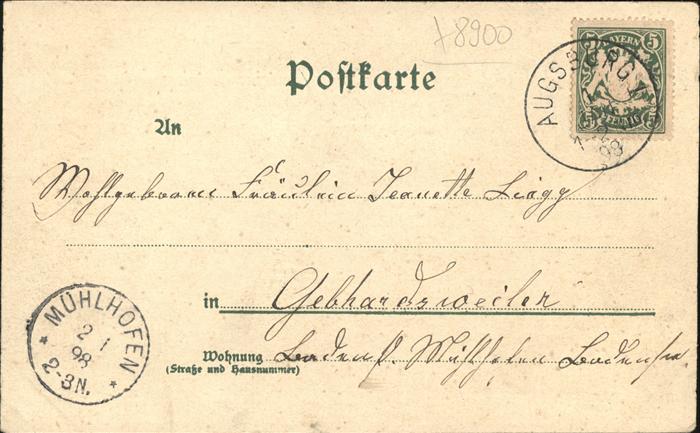 +8900
5 BAYERN 5
5 PFENNIG 5
AUGSBURG
98
Postkarte
An
Wohlgeboren Fräulein Jeanette
in Gebhardsweiler
Wohnung
(Straße und Hausnummer)
Baden P. Mühlhofen Bodensee
* MÜHLHOFEN *
2 1
98
2-3N.